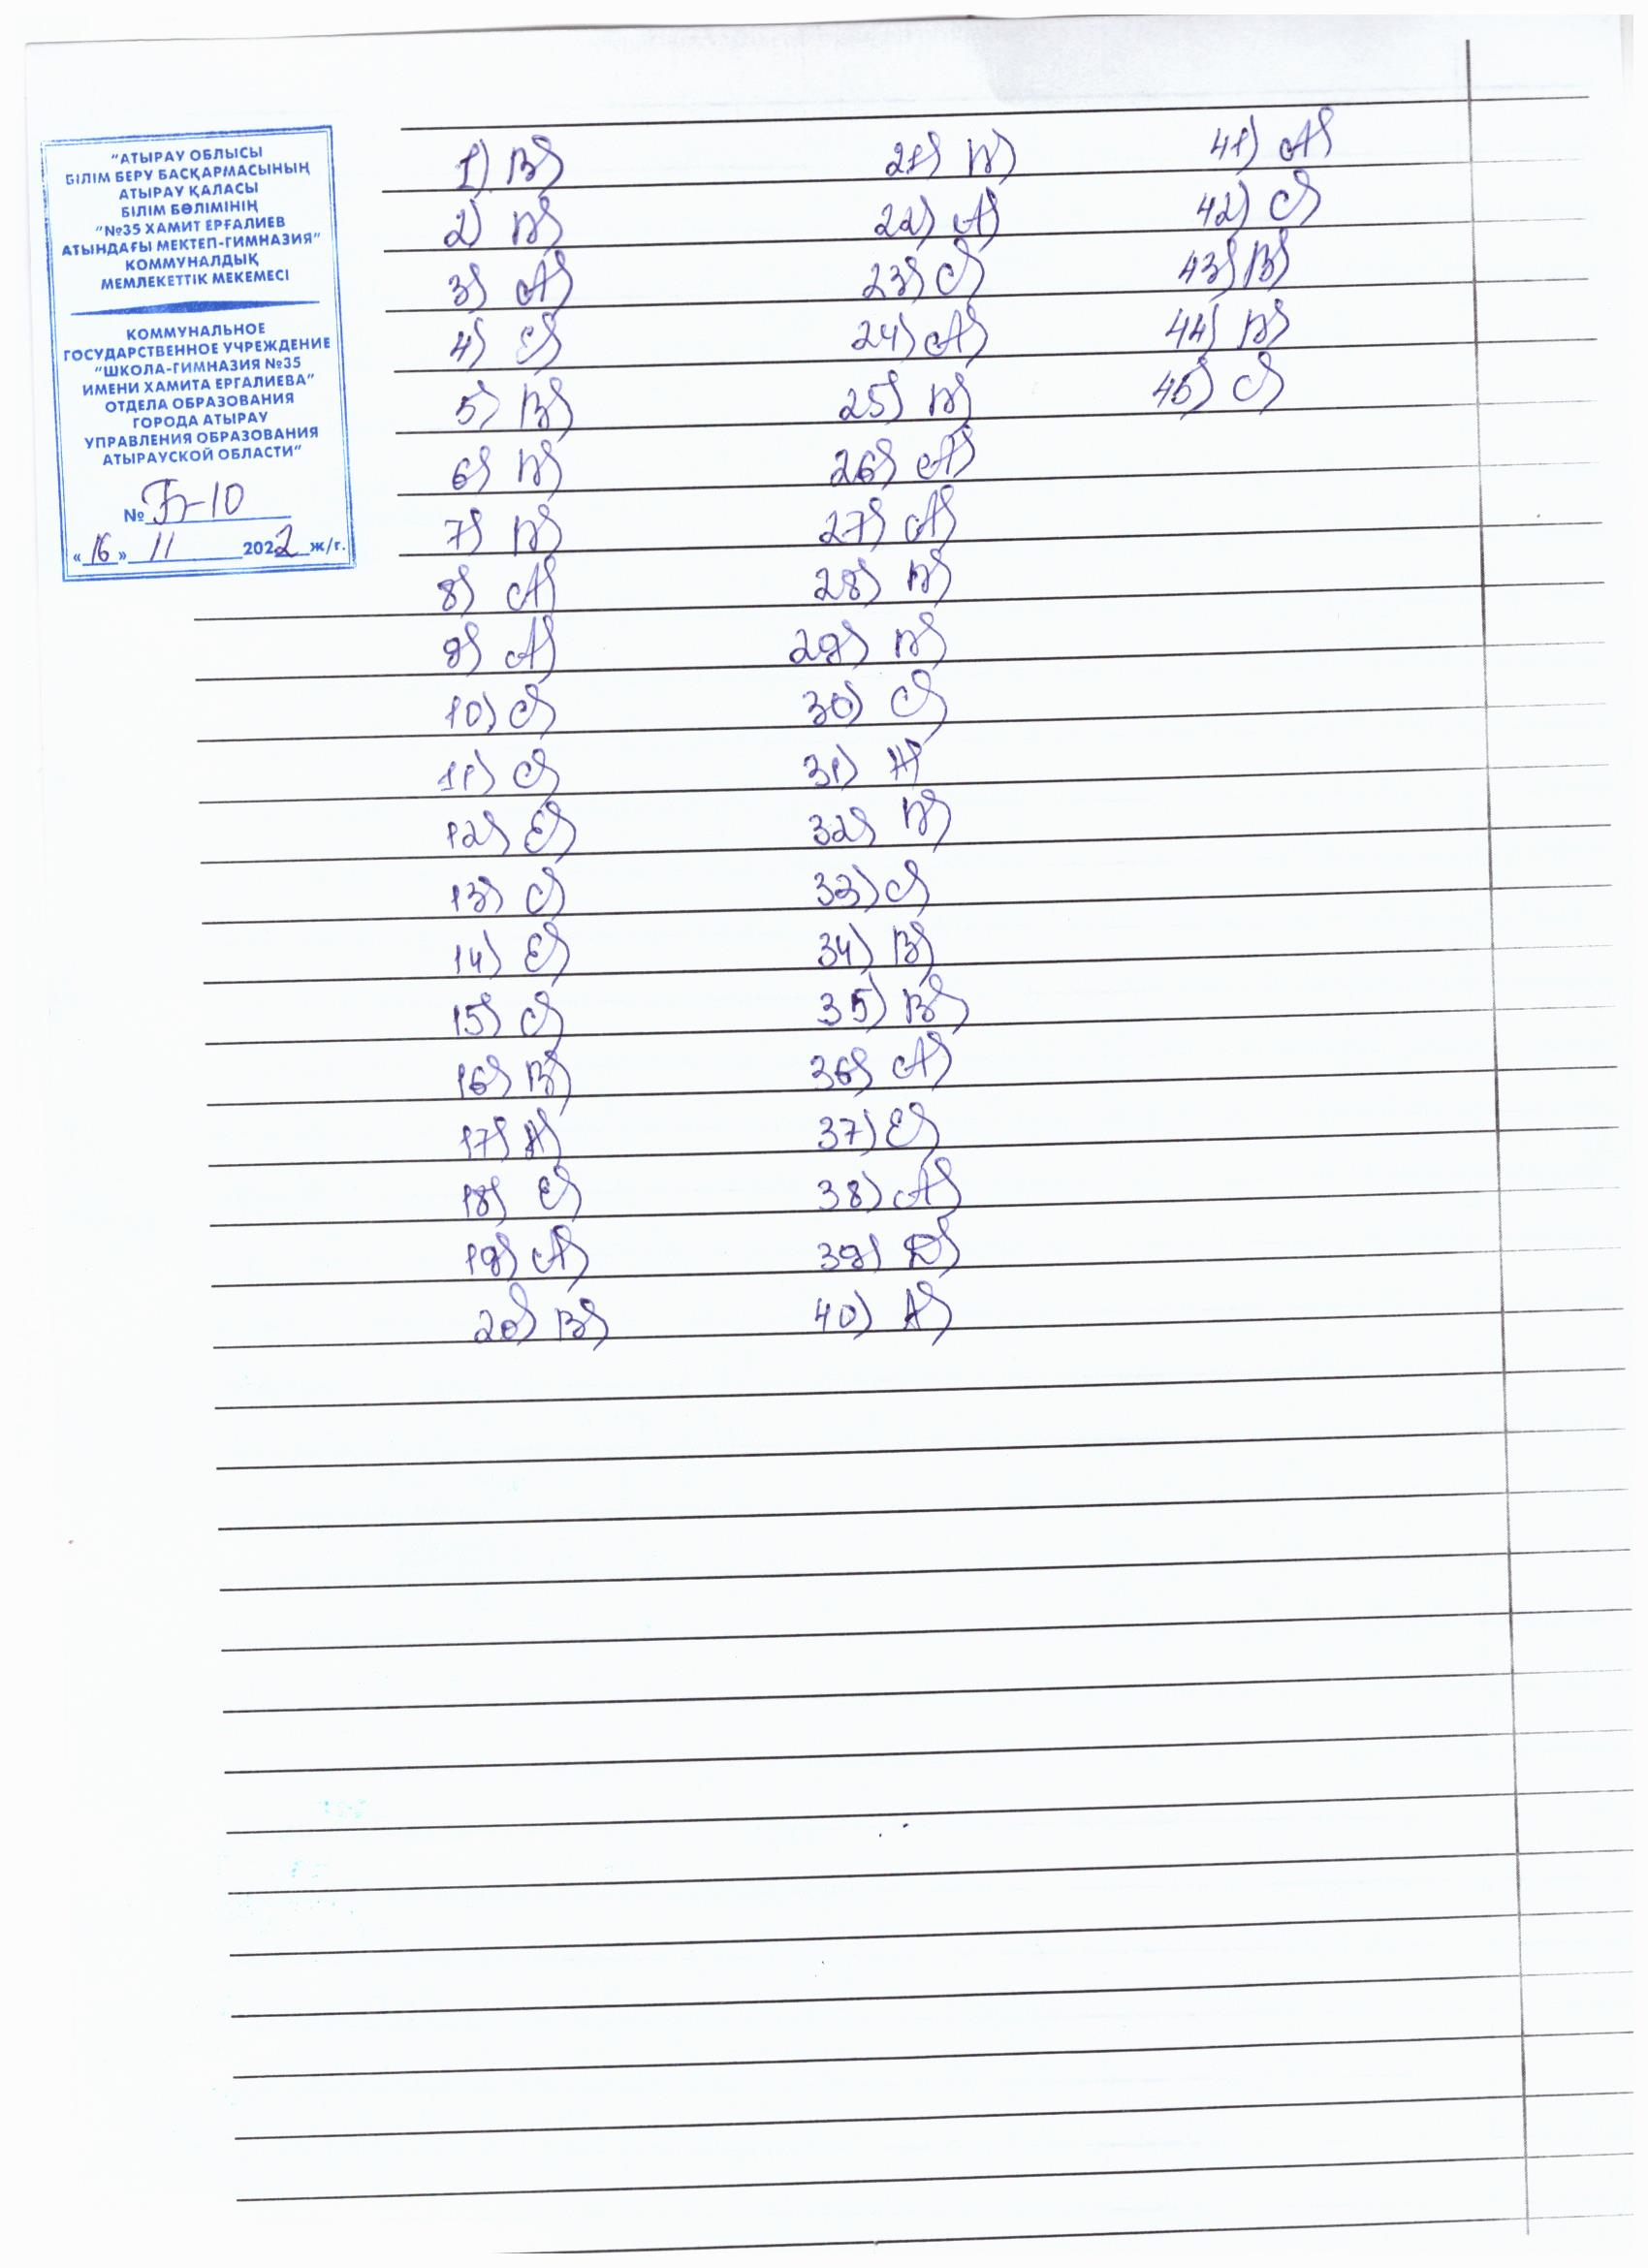 "АТЫРАУ ОБЛЫСЫ
БІЛІМ БЕРУ БАСҚАРМАСЫНЫҢ
АТЫРАУ ҚАЛАСЫ
БІЛІМ БӨЛІМІНІҢ
"№35 ХАМИТ ЕРҒАЛИЕВ
АТЫНДАҒЫ МЕКТЕП-ГИМНАЗИЯ"
КОММУНАЛДЫҚ
МЕМЛЕКЕТТІК МЕКЕМЕСІ
КОММУНАЛЬНОЕ
ГОСУДАРСТВЕННОЕ УЧРЕЖДЕНИЕ
"ШКОЛА-ГИМНАЗИЯ №35
ИМЕНИ ХАМИТА ЕРГАЛИЕВА"
ОТДЕЛА ОБРАЗОВАНИЯ
ГОРОДА АТЫРАУ
УПРАВЛЕНИЯ ОБРАЗОВАНИЯ
АТЫРАУСКОЙ ОБЛАСТИ"
№ Б-10
«16» 11 2022 ж/г.
1) B)
2) D)
3) A)
4) E)
5) B)
6) D)
7) D)
8) A)
9) A)
10) C)
11) C)
12) E)
13) C)
14) E)
15) C)
16) B)
17) A)
18) E)
19) A)
20) B)
21) D)
22) A)
23) C)
24) A)
25) D)
26) A)
27) A)
28) D)
29) D)
30) C)
31) A)
32) D)
33) C)
34) B)
35) B)
36) A)
37) E)
38) A)
39) D)
40) A)
41) A)
42) C)
43) B)
44) D)
45) C)